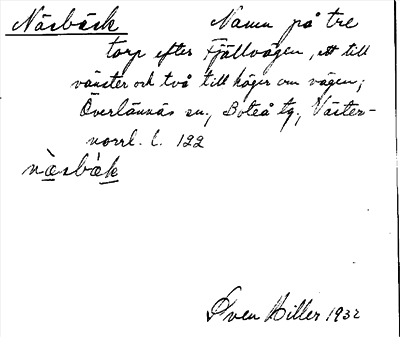 Näsbäck Namn på tre
torp efter Fjällvägen, ett till
vänster och två till höger om vägen;
Överlännäs sn., Boteå tg., Väster-
norrl. l. 122
næsbæk
Sven Hiller 1932